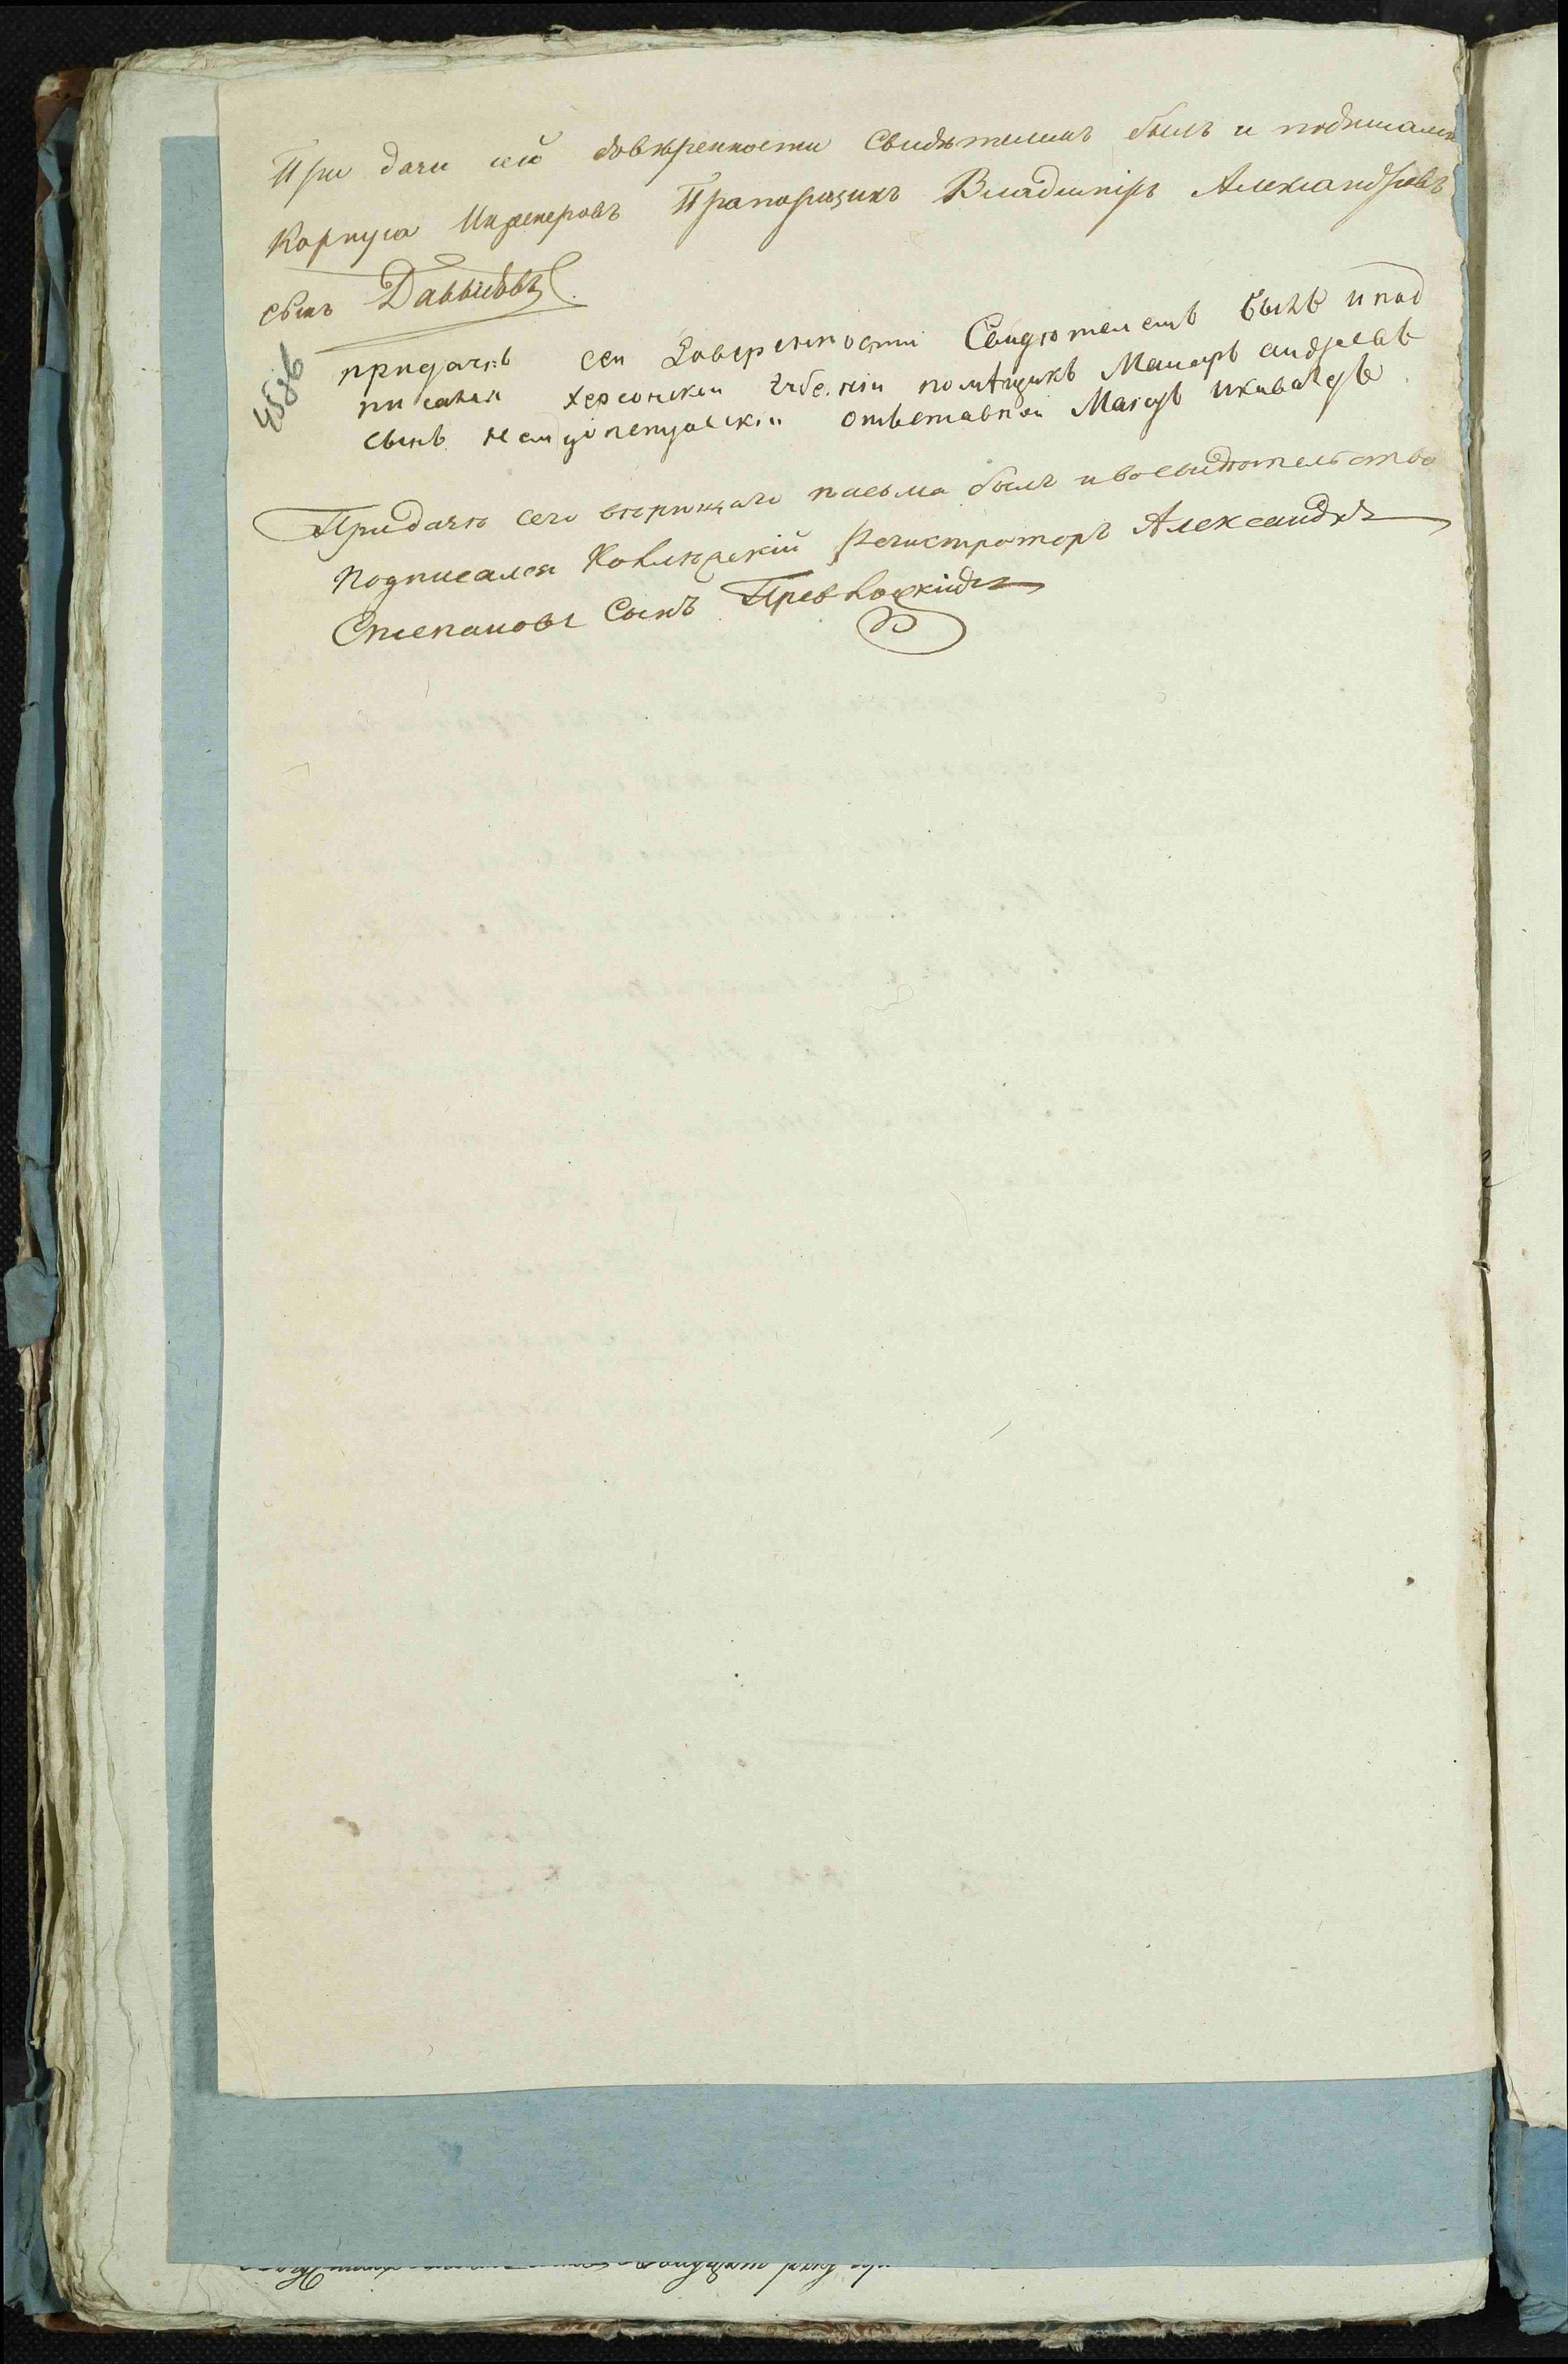 При дачи сей довѣренности свидѣтелемъ былъ и подписался
Корпуса Инженеровъ Прапорщикъ Владимiръ Александровъ
сынъ Давыдовъ
придачѣ сеи Доверенности Свидѣтелемъ былъ и под
писался херсонскои губернiи помѣщикъ Маиоръ андреевъ
сынъ отъставнои Маiоръ
Придачѣ сего вѣрющаго писма былъ ивосвидѣтельство
подписался Колежскiй Регистраторъ Александръ
Степановъ Сынъ